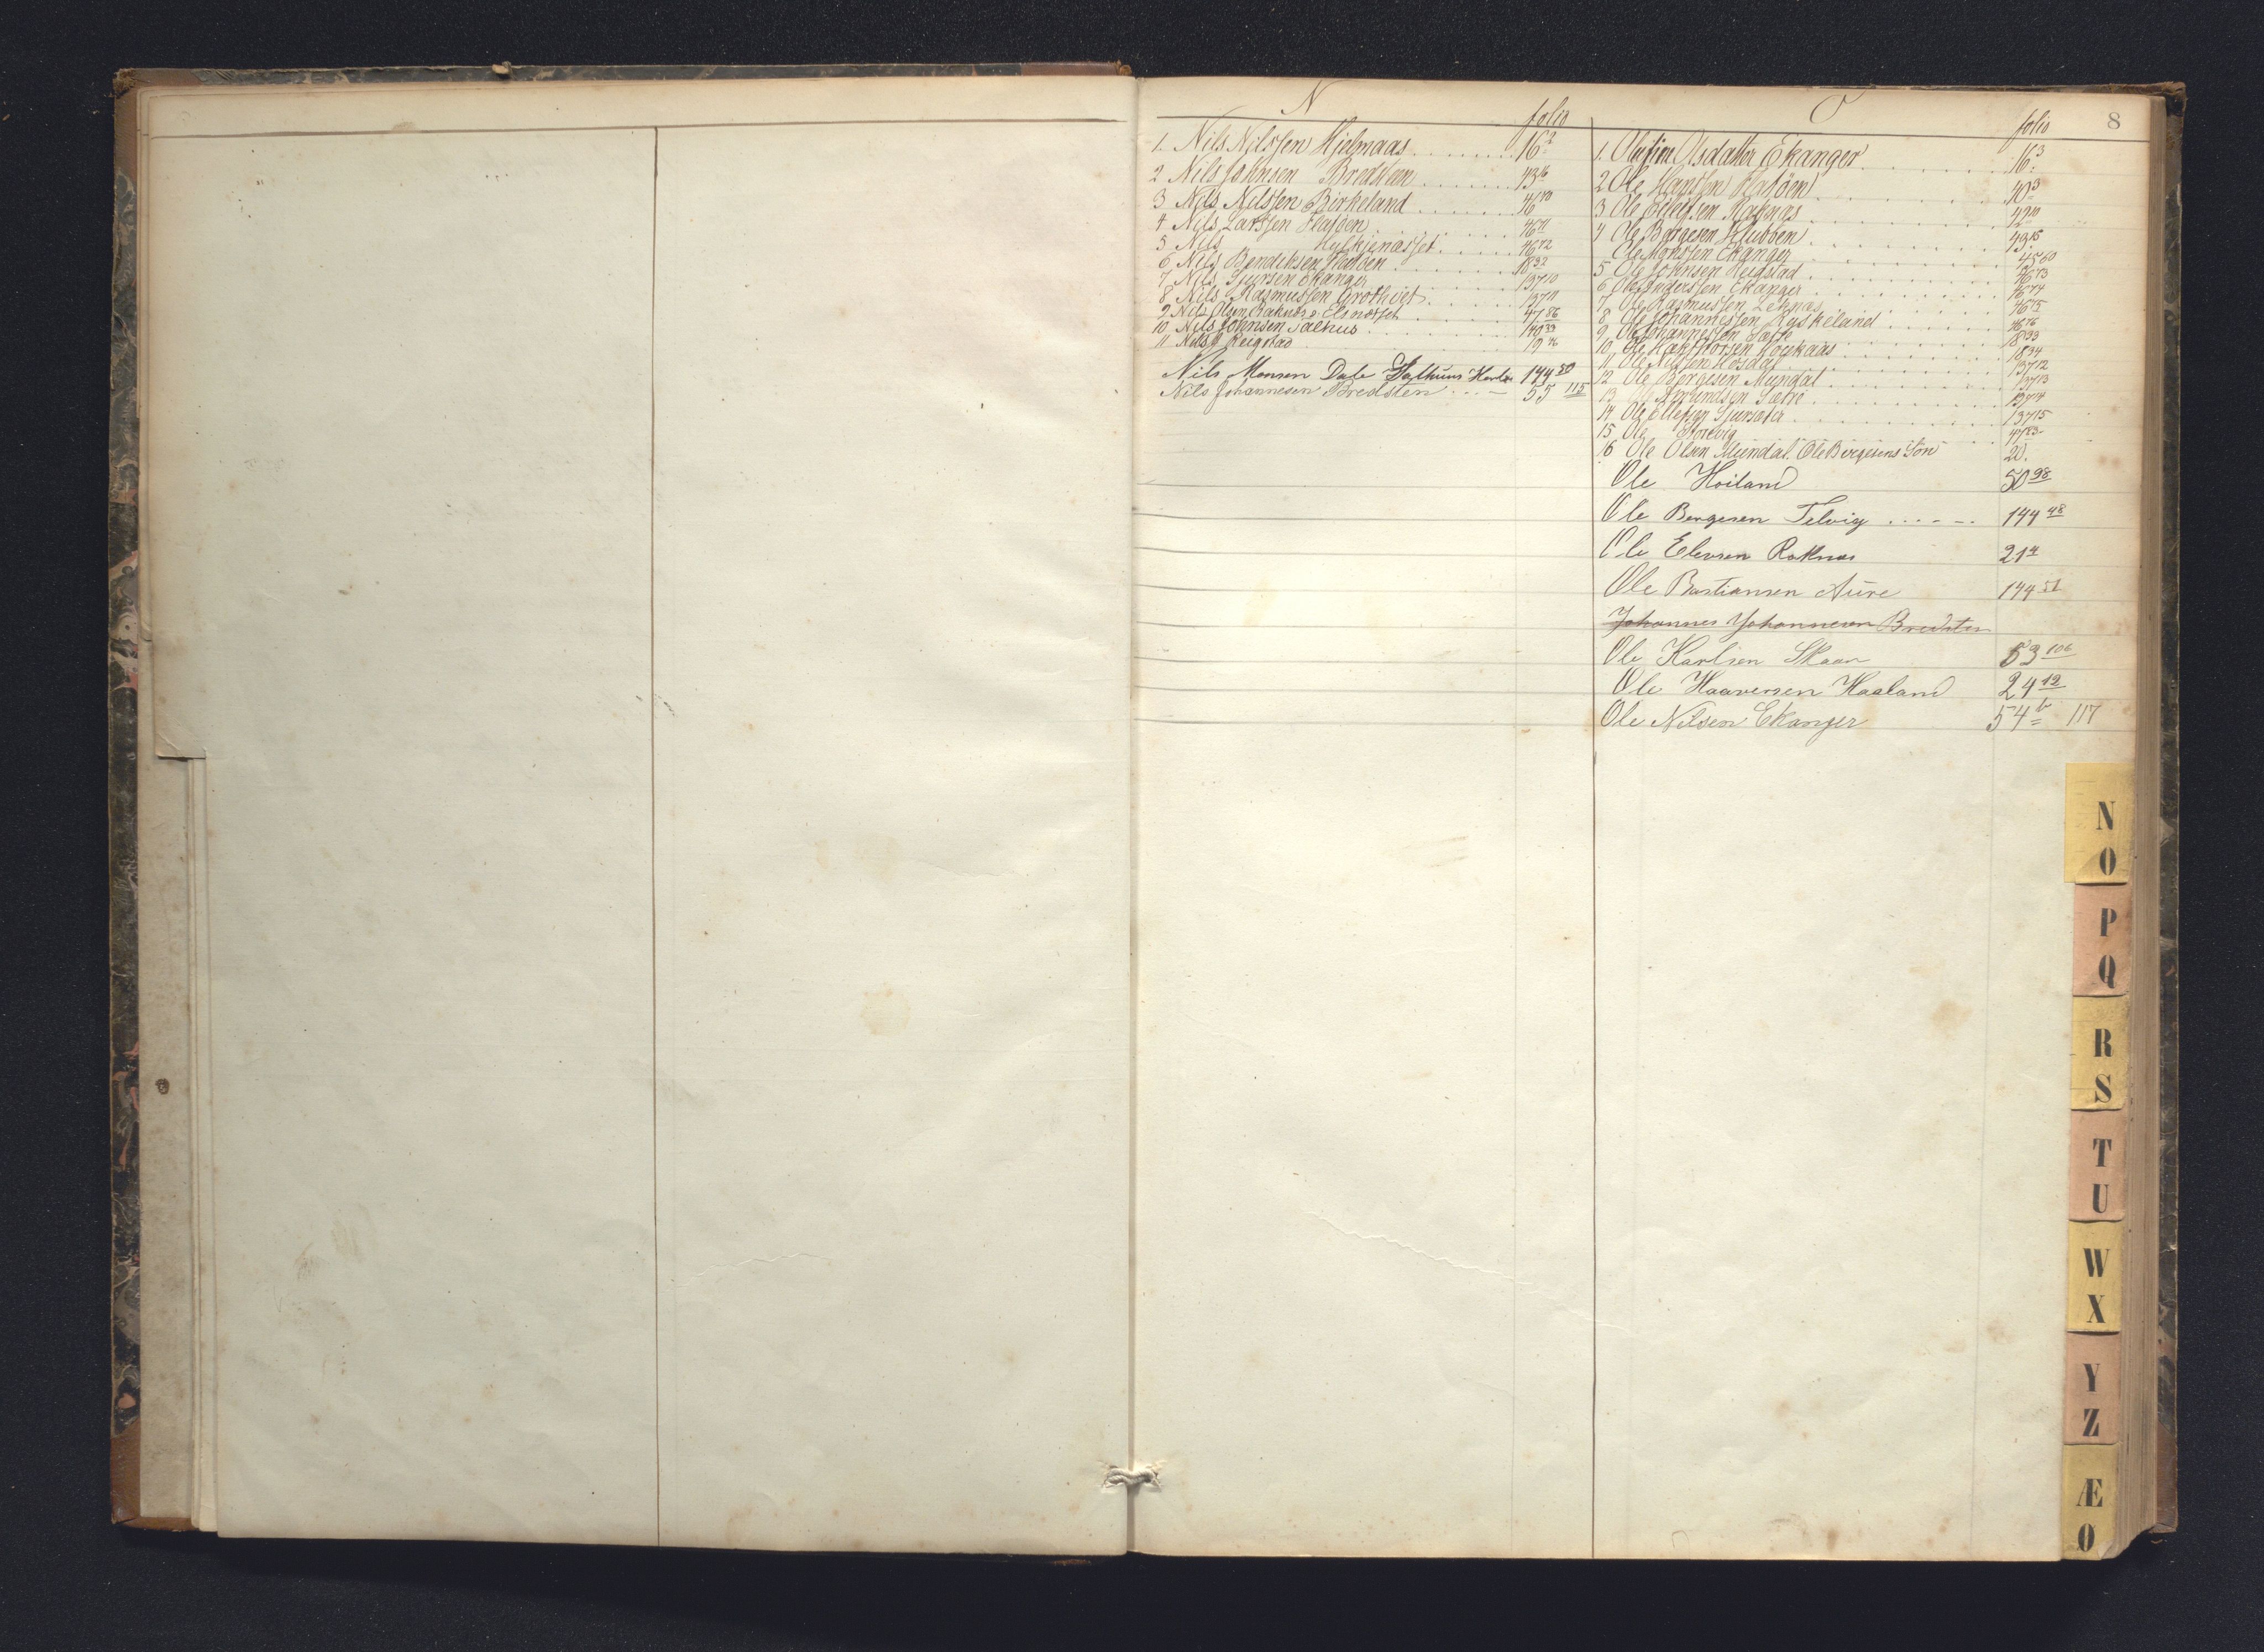 8
N folio
1. Nils Nilssen Hjelmaas 16 2
2 Nils Johnsen Bredsteen 43 16
3 Nils Nilssen Birkeland 46 70
4 Nils Larssen Flatøen 46 71
5 Nils Hylkjenæsset 46 72
6 Nils Bendiksen Fladøen 18 32
7 Nils Sjursen Ekanger 137 10
8 Nils Rasmussen Grothvet 137 11
9 Nils Olsen Raknæs Elsnæsset 47 86
10 Nils Johnsen Salhus 140 33
11 Nils Reigstad 19
Nils Monsen Dale Salhuus 144 50
Nils Johannesen Bredsten 55 115
O folio
1. Olufine Olsdatter Ekanger 16 3
2 Ole Hanssen Flatøen 40 3
3 Ole Ellefsen Raknæs 42 10
4 Ole Børgesen Klubben 43 15
Ole Monssen Ekanger 45 60
5 Ole Johnsen Reigstad 46 73
6 Ole Anderssen Ekanger 46 74
7 Ole Rasmussen Leknæs 46 75
8 Ole Johannessen Myskeland 46 76
9 Ole Johannessen Sætre 18 33
10 18 34
11 Ole Nilssen Rosdal 137 12
12 Ole Børgesen Mundal 137 13
13 Amundsen Sætre 137 14
14 Ole Ellefsen 137 15
15 Ole Storevig 47 83
16 Ole Olsen Mundal Ole Børgesens Søn 20.
Ole Hoiland 50 98
Ole Børgesen Telvig 144 48
Ole Elevsen Raknæs 21 4
Ole Bastiansen Aure 144 51
Johannes Johannesen Bredsten
Ole Karlsen Skaar 53 106
Ole Haaversen Haaland 24 12
Ole Nelsen Ekanger 54 b 117
N
O
P
Q
R
S
T
U
W
X
Y
Z
Æ
Ø